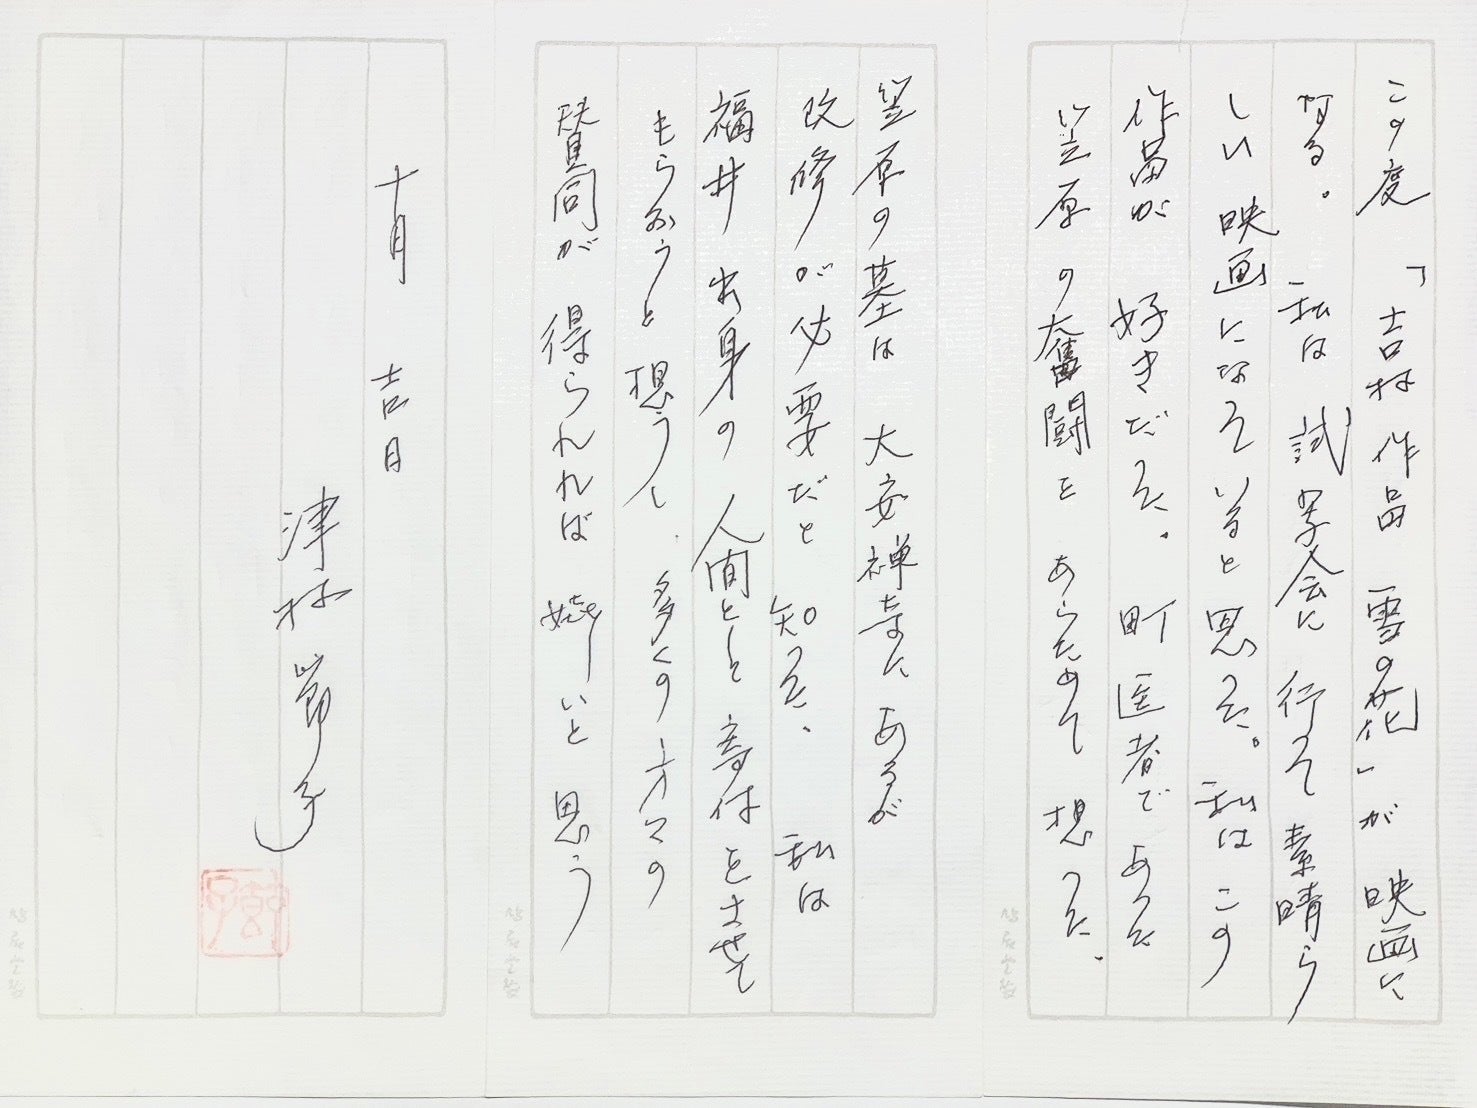 この度「吉村作品 雪の花」が映画に
なる。私は試写会に行って素晴ら
しい映画になっていると思った。私はこの
作品が好きだった。町医者であった
笠原の奮闘をあらためて想った。
笠原の墓は大安禅寺にあるが
改修が必要だと知った、私は
福井出身の人間として寄付をさせて
もらおうと想うし、多くの方々の
賛同が得られれば嬉しいと思う
十月 吉日
津村節子